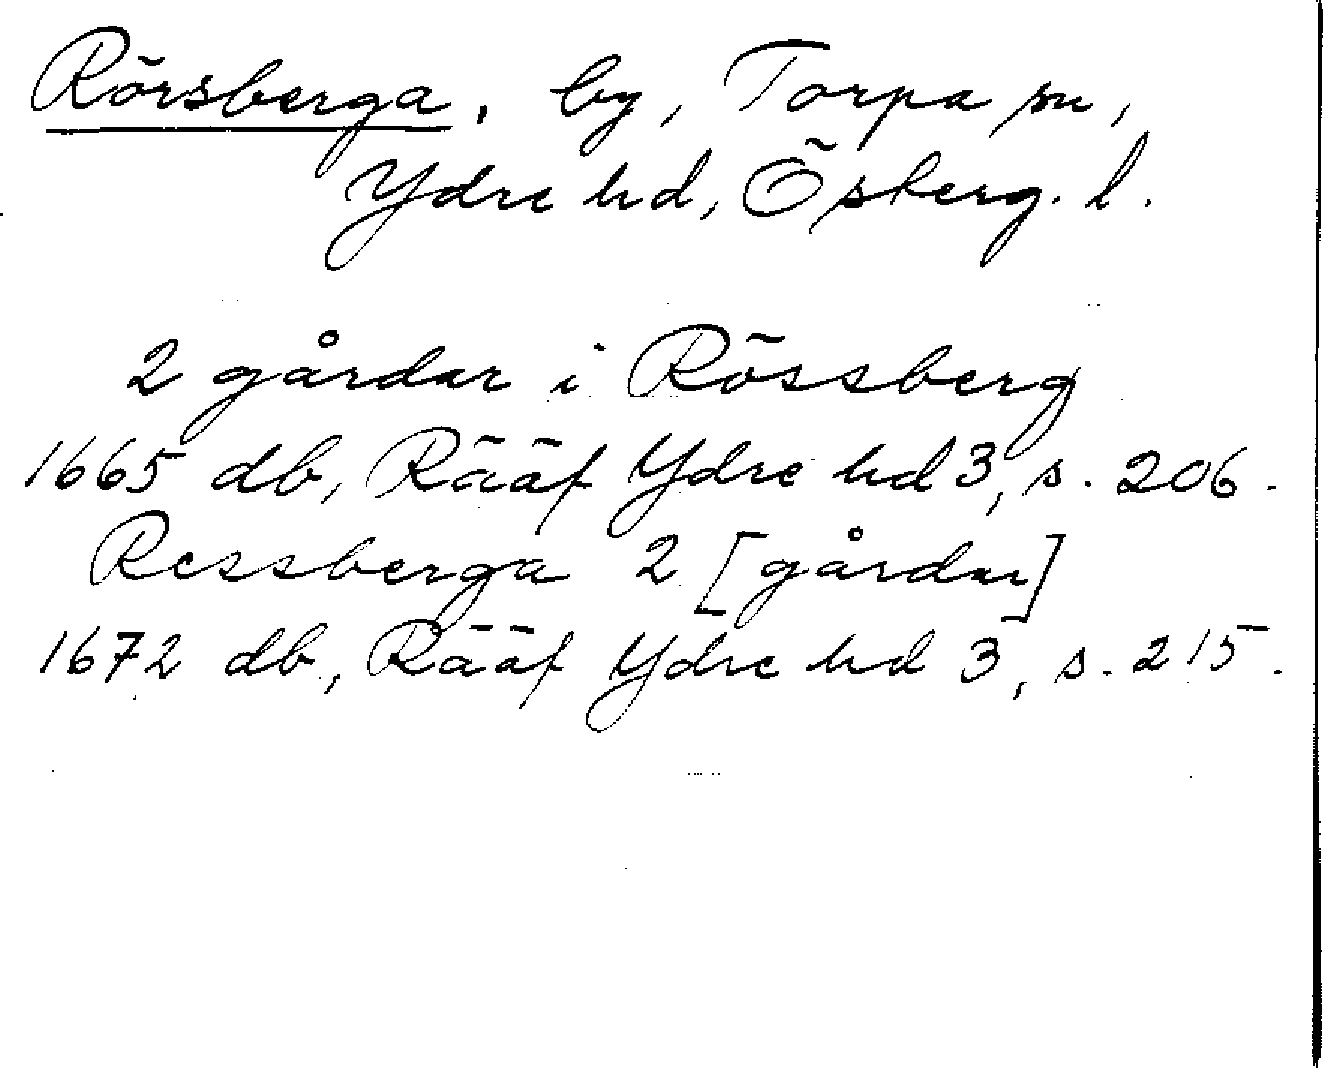 Rörsberga, by, Torpa sn,
Ydre hd, Ösberg. l.
2 gårdar i Rössberg
1665 db, Rääf Ydre hd 3, s. 206.
Ressberga 2 [gårdar]
1672 db, Rääf Ydre hd 3, s. 215.